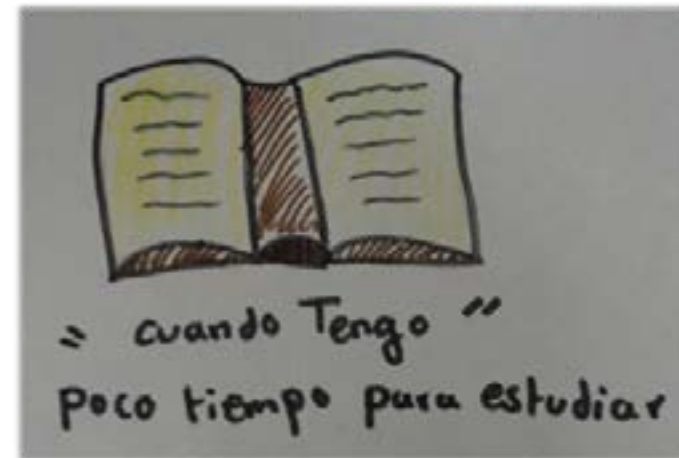 " cuando Tengo "
poco tiempo para estudiar